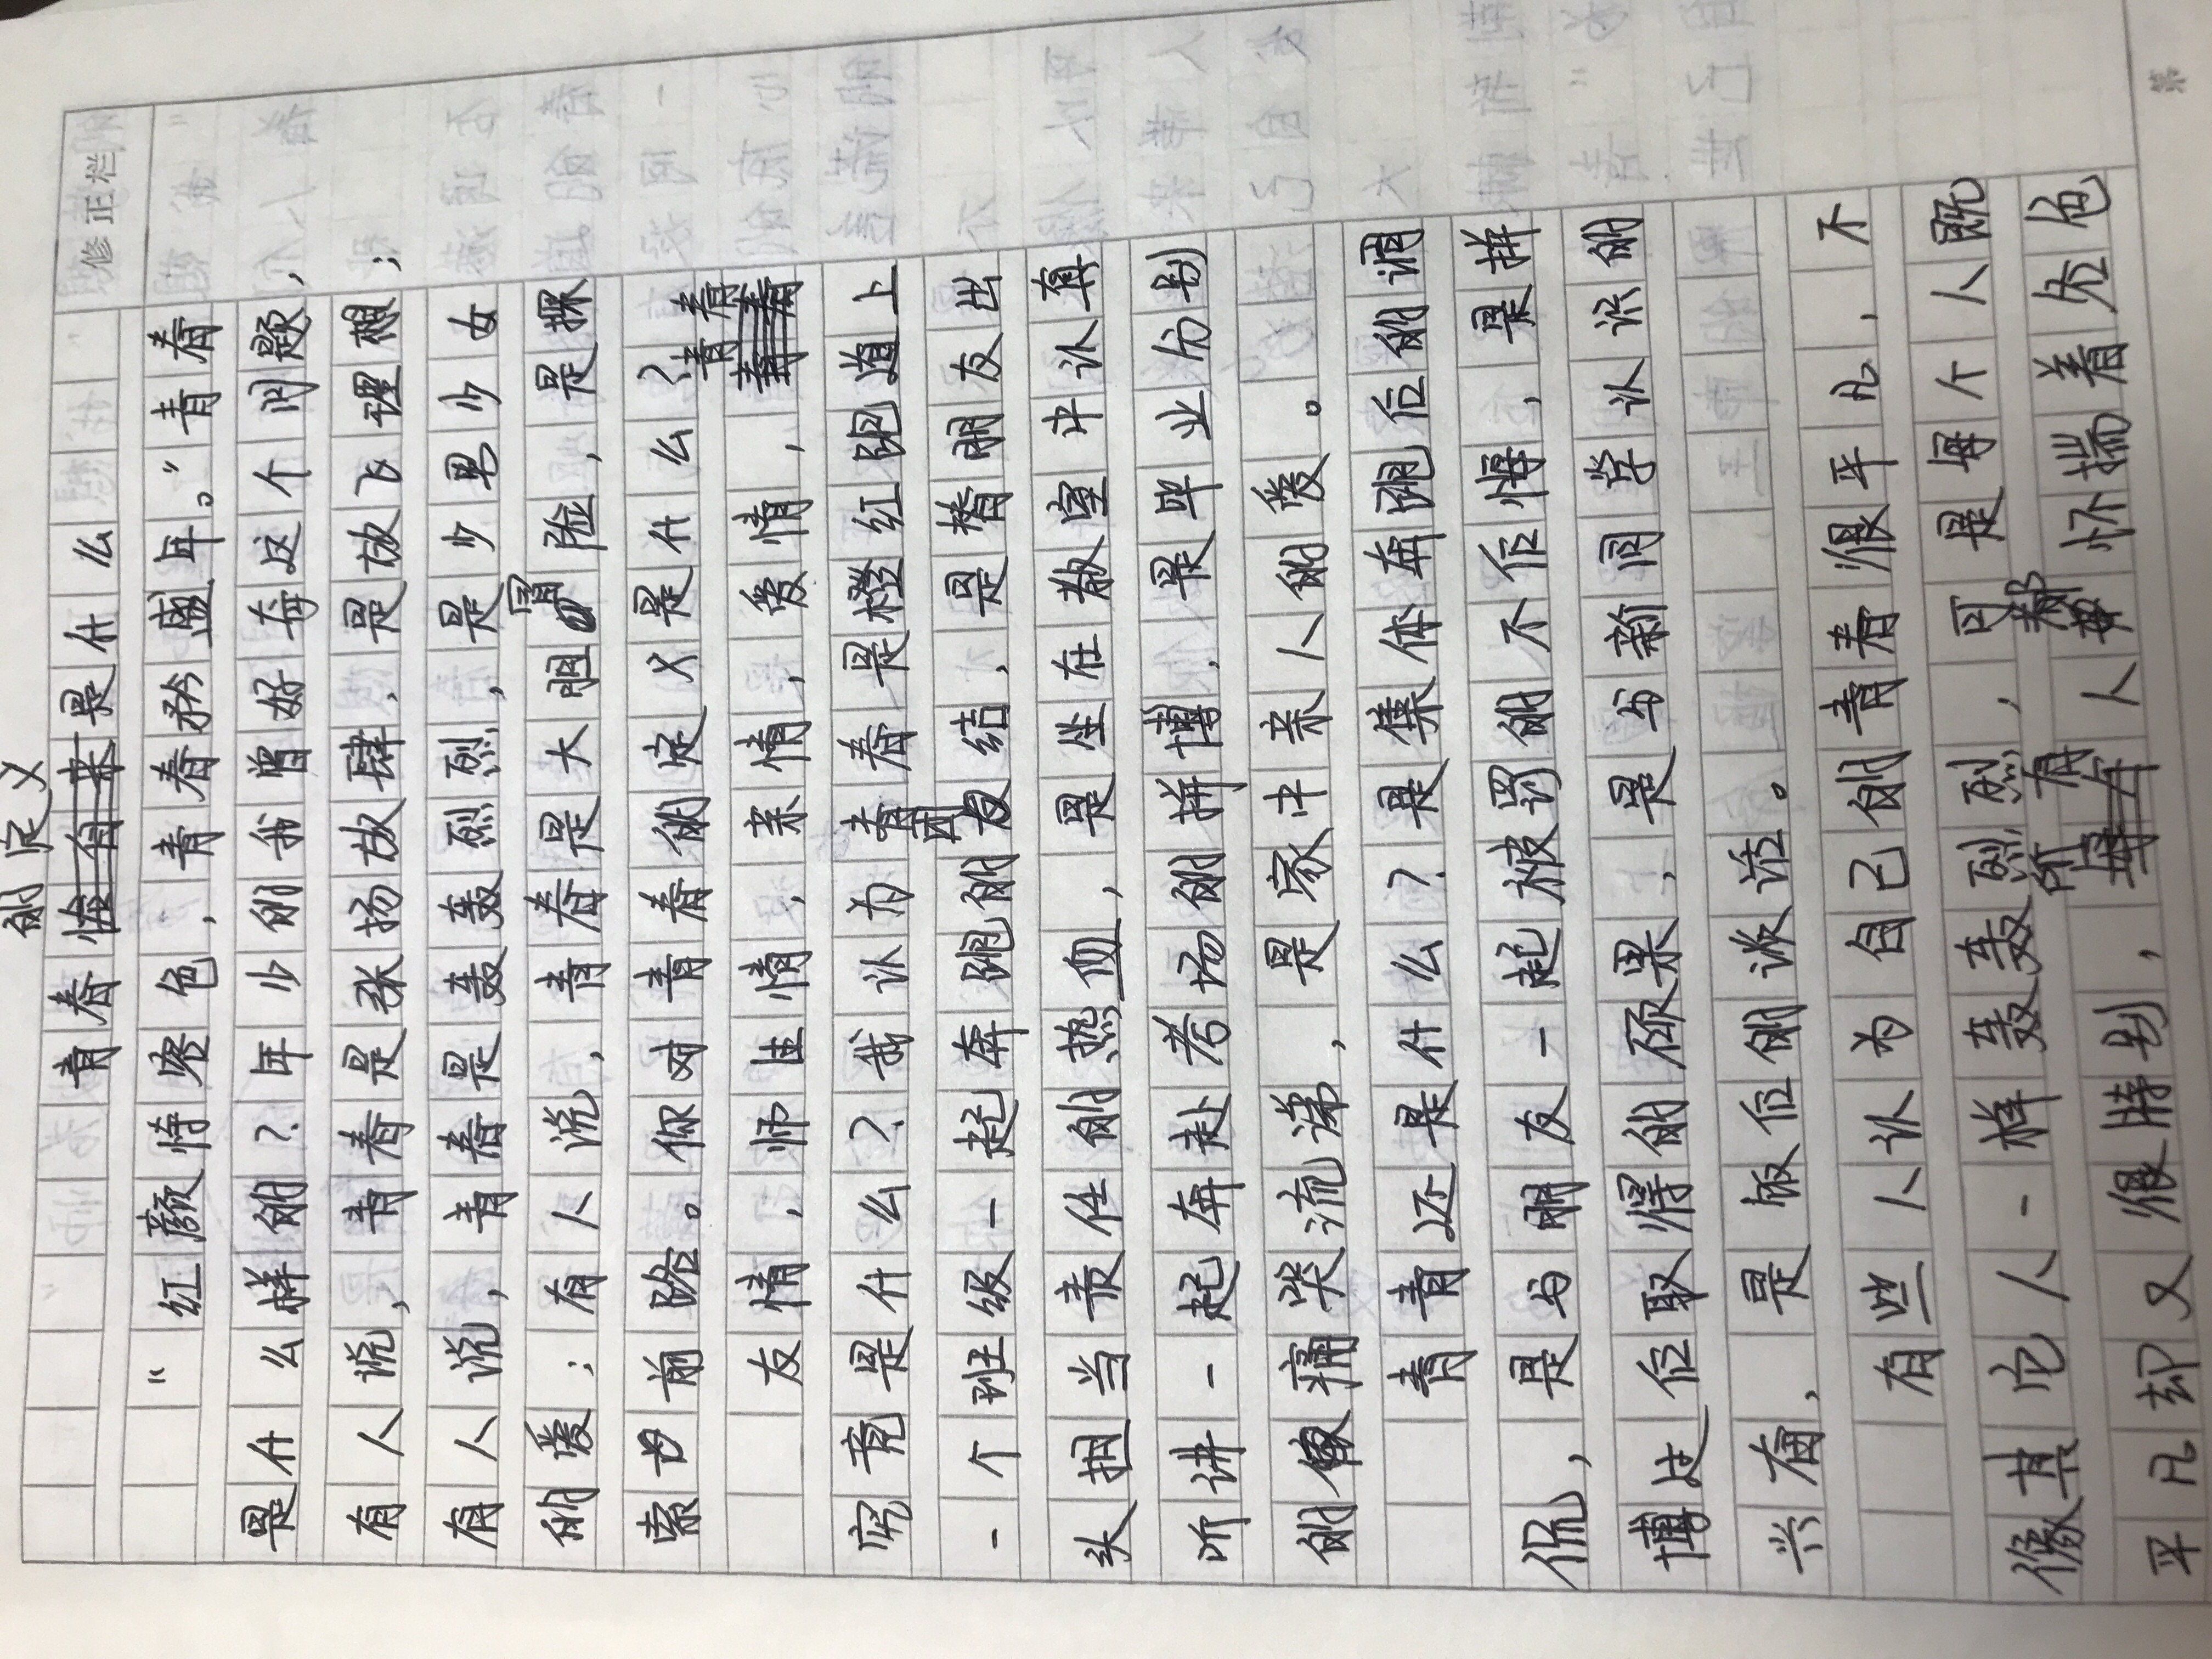 修正栏
青春的定义是什么
“红颜恃容色，青春矜盛年。”青春
是什么样的？年少的我曾好奇这个问题，
有人说，青春是张扬放肆，是放飞理想；
有人说，青春是轰轰烈烈，是少男少女
的爱；有人说，青春是大胆冒险，是探
索前路。你对青春的定义是什么？青春
友情，师生情，亲情，爱情，
究竟是什么？我认为青春是橙红跑道上
一个班级一起奔跑的团结，是替朋友出
头担当责任的热血，是坐在教室中认真
听讲一起奔赴考场的拼搏，是毕业分别
的痛哭流涕，是家中亲人的爱。
青青还是什么？是集体奔跑后的调
侃，是与朋友一起被罚的不后悔，是拼
搏过后取得的硕果，是与新同学认识的
兴奋，是饭后的谈话。
有些人认为自己的青春很平凡，不
像其它人一样轰轰烈烈，可是每个人既
平凡却又很特别，所有人都怀揣着各色